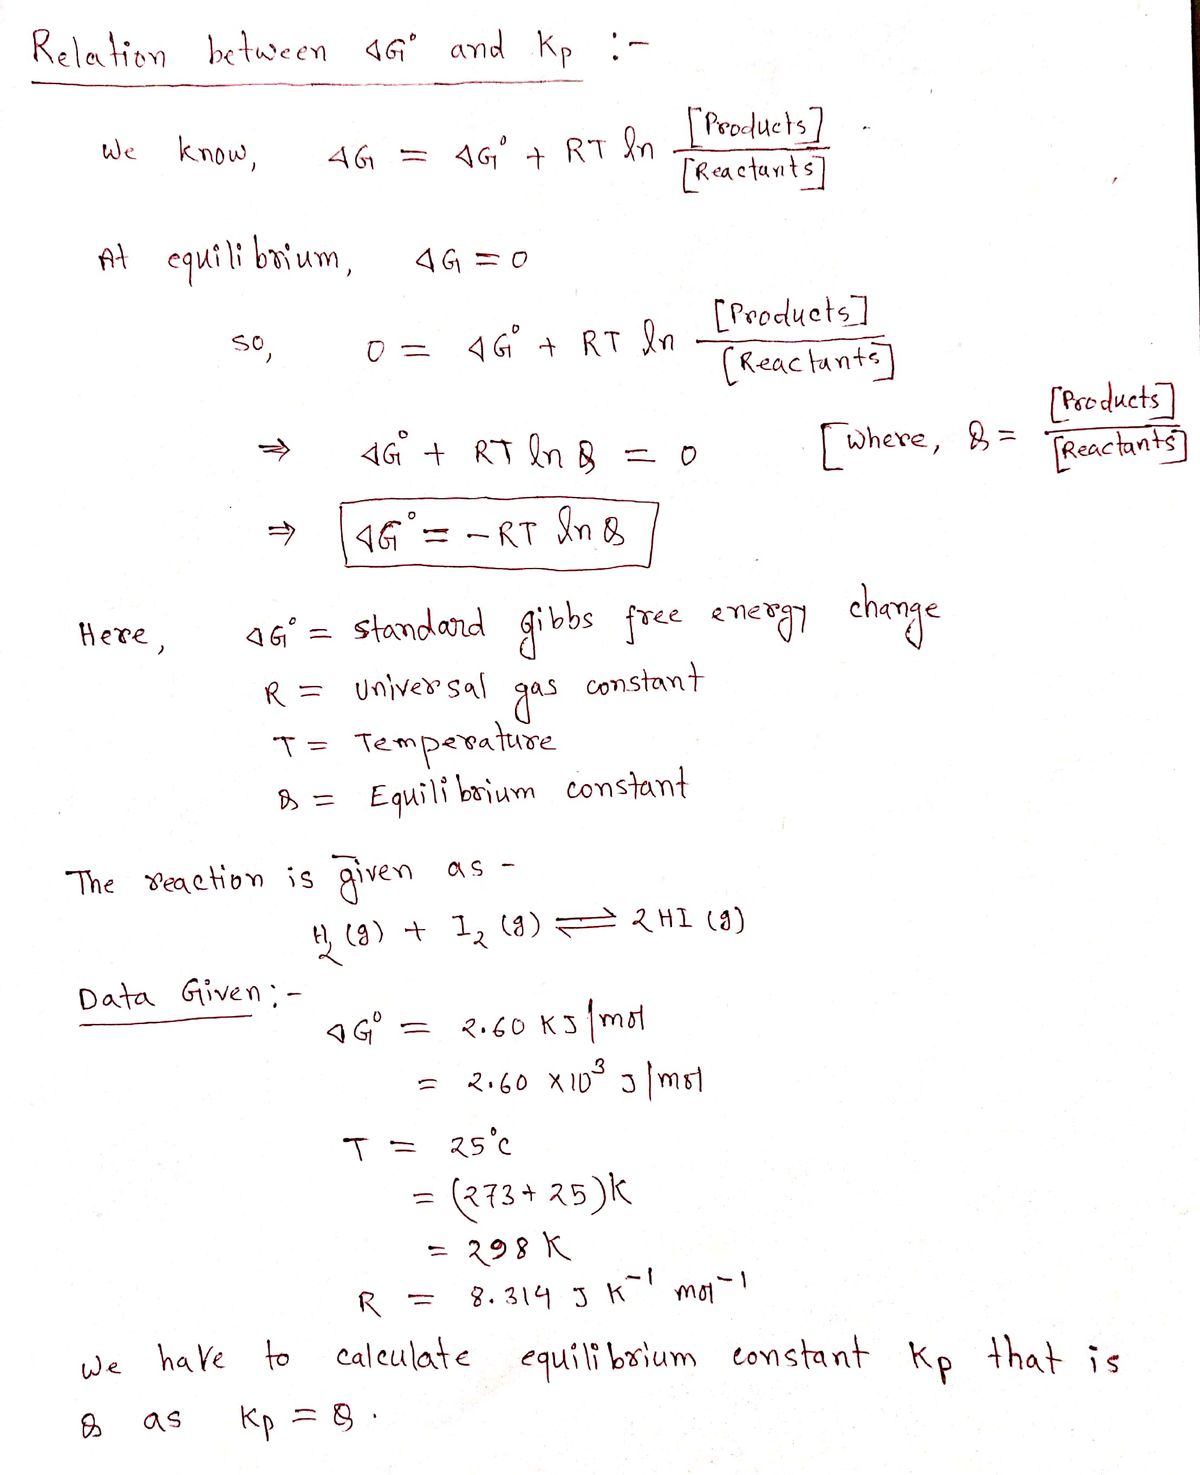 Relation between ΔG° and Kp :-
We know, ΔG = ΔG° + RT ln [Products] / [Reactants]
At equilibrium, ΔG = 0
so, 0 = ΔG° + RT ln [Products] / [Reactants]
⇒ ΔG° + RT ln Q = 0 [where, Q = [Products] / [Reactants]
⇒ ΔG° = -RT ln Q
Here, ΔG° = standard gibbs free energy change
R = universal gas constant
T = Temperature
Q = Equilibrium constant
The reaction is given as -
H₂ (g) + I₂ (g) ⇌ 2 HI (g)
Data Given :-
ΔG° = 2.60 KJ/mol
= 2.60 × 10³ J/mol
T = 25°C
= (273 + 25) K
= 298 K
R = 8.314 J K⁻¹ mol⁻¹
We have to calculate equilibrium constant Kp that is
Q as Kp = Q .